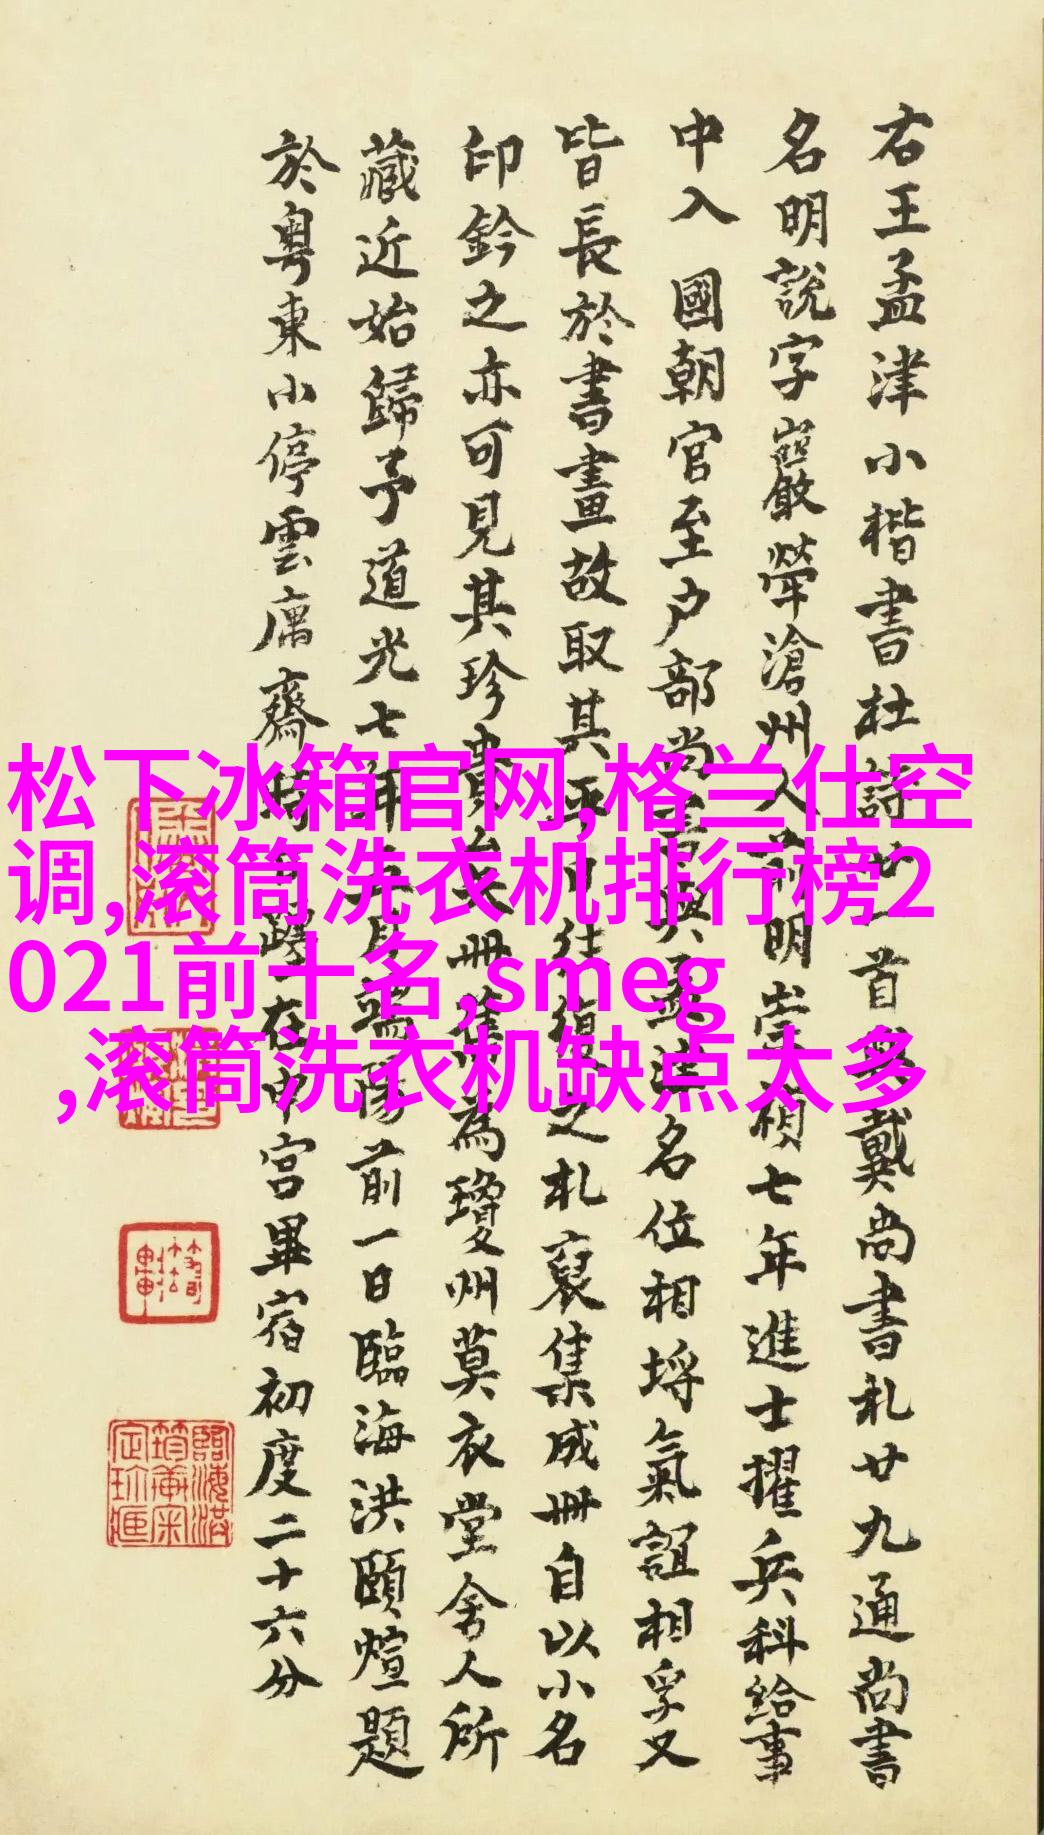 右王孟津小楷書杜詩 一首 戴尚書札廿九通尚書
名明說字巖犖滄州人 明崇禎七年進士擢兵科給事
中入國朝官至户部尚書與 名位相埒氣誼相孚又
皆長於書畫故取其平日往復之札裒集成冊自以小名
印鈐之亦可見其珍 冊舊為瓊州莫衣堂舍人所
藏近始歸予道光七年 月端陽前一日臨海洪頤煊題
於粵東小停雲 齋時 躔在中宮畢宿初度二十六分
松下冰箱官网,格兰仕空
调,滚筒洗衣机排行榜2
021前十名,smeg
,滚筒洗衣机缺点太多